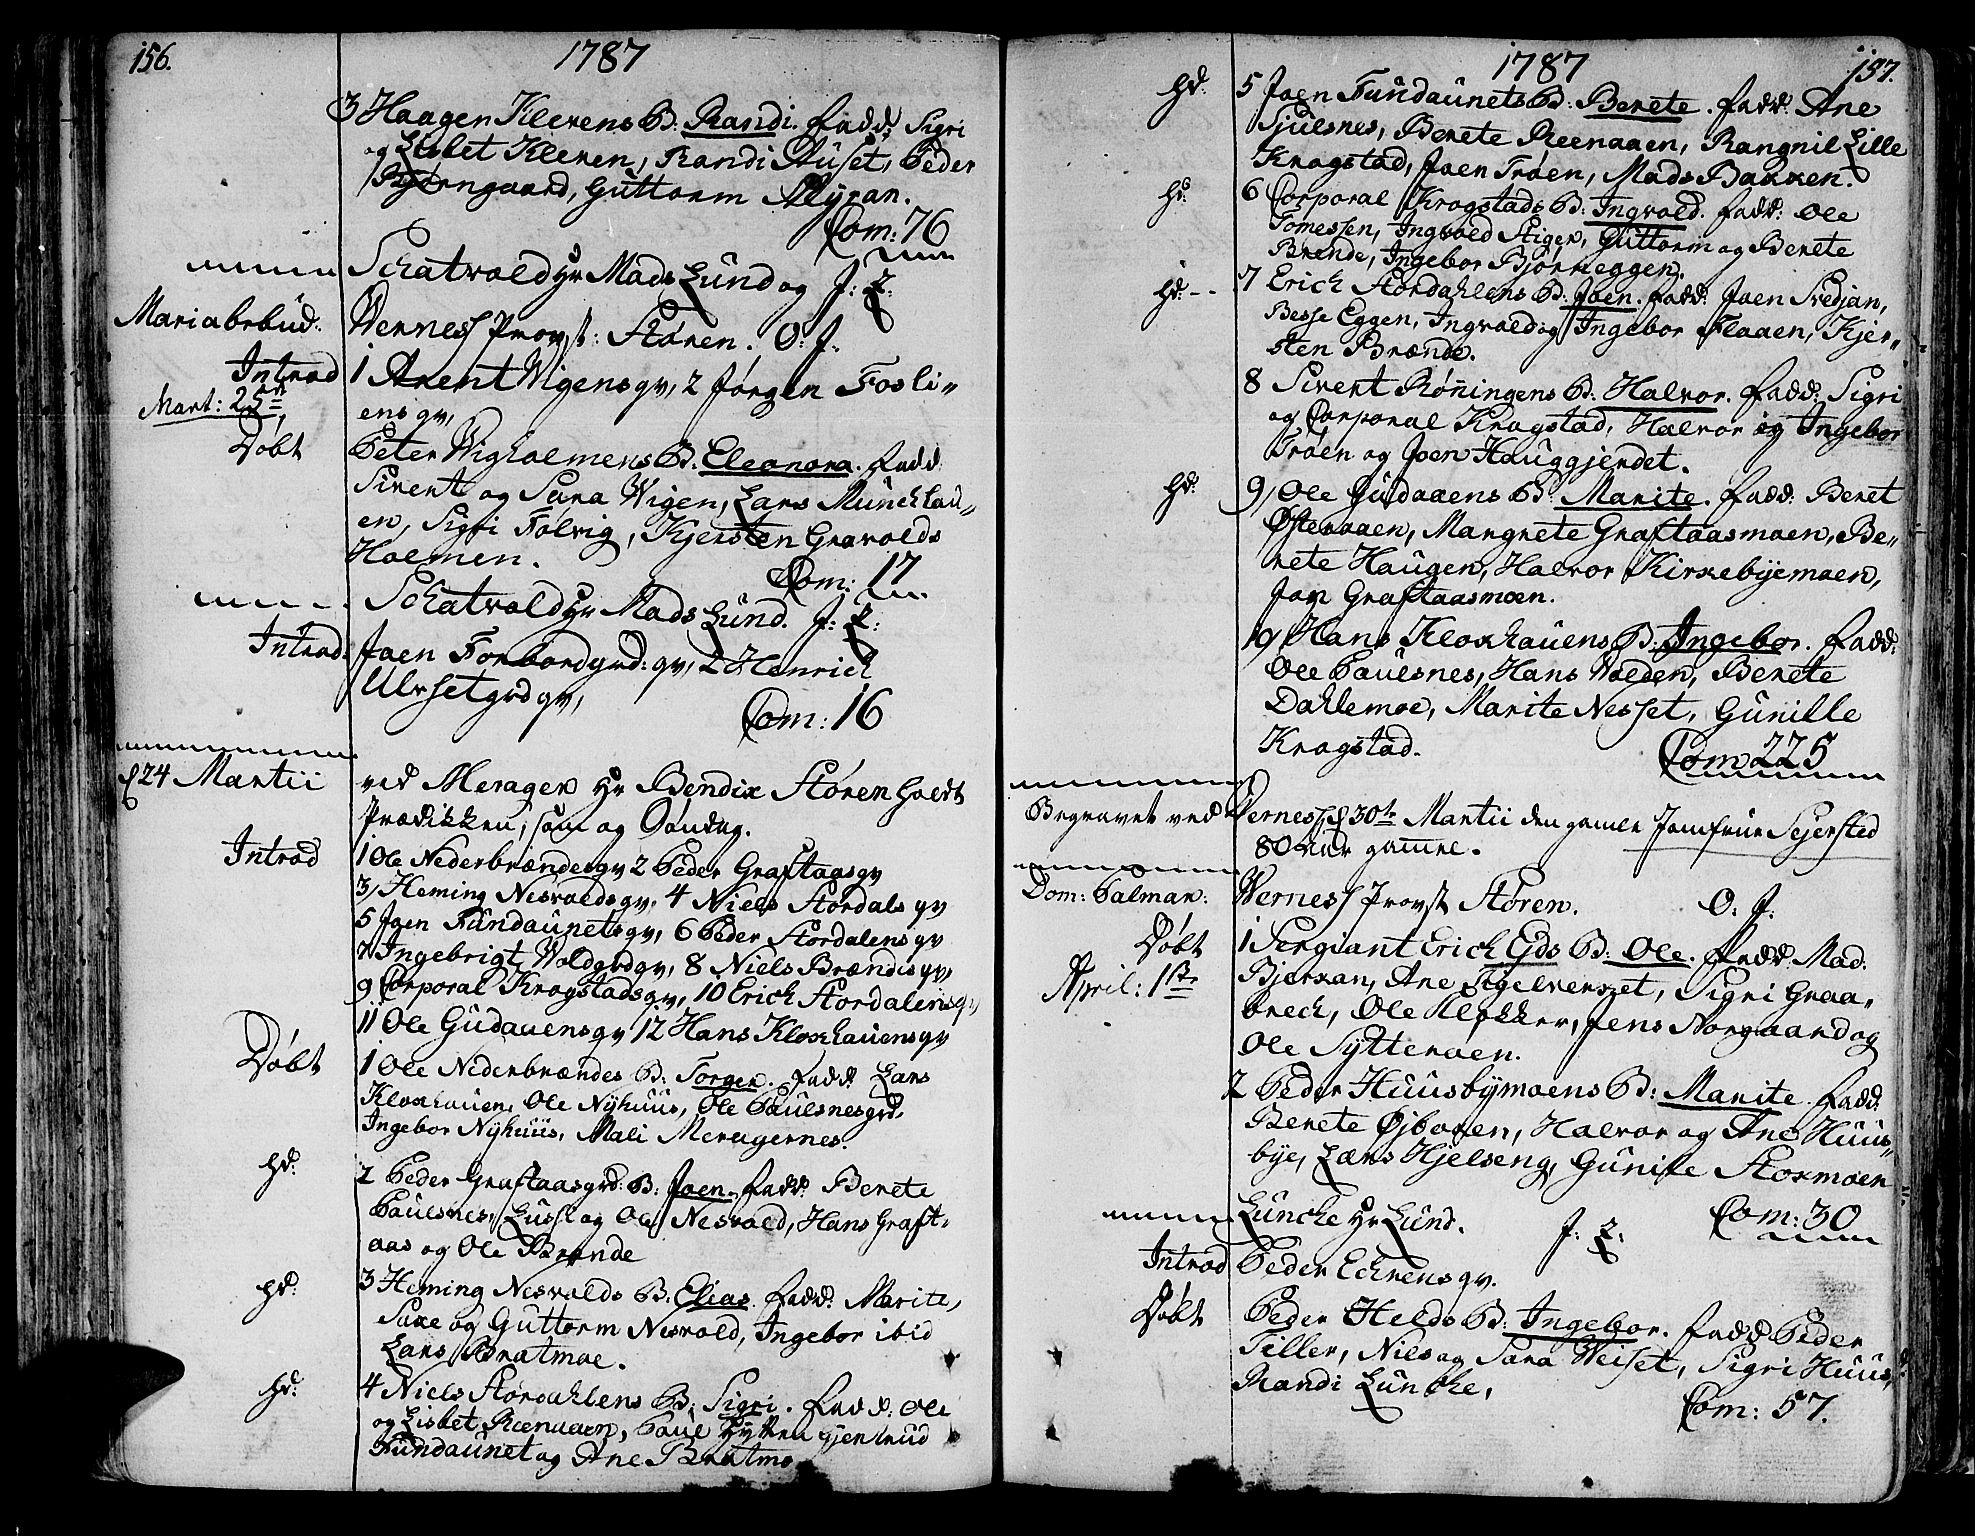 156.
1787
3 Haagen Klevens B. Randi. Fadd. Sigri
og Lisbet Kleven, Randi Huset, Peder
Guttorm Myran.
Com: 76
Schatvold Hr Mads Lund og J: Z:
Mariæbebud:
Verness Provst: Støren. O. J.
Introd
1 Arent Wigens qv, 2 Jørgen Fosli-
Mart: 25de
ens qv,
Døbt
Peter Wigholmens B. Eleonora. Fadd.
Sivert og Sara Wigen, Lars Munchhau-
en, Sigri Folvig, Kjersten Gravolds
Holmen.
Com: 17
Schatvold Hr Mads Lund. J: Z:
Introd.
Joen Forbordgrd: qv, 2 Henrich
Ulvsetgrd qv,
Com: 16
d 24 Martii
ved Merager Hr Bendix Støren holdt
Prædikken, som og Søndag.
Introd
1 Ole Nederbrændes qv 2 Peder Graftaas qv
3, Heming Nesvolds qv, 4 Niels Stordals qv
5 Joen Fundaunets qv, 6 Peder Stordalens qv
7 Ingebrigt Woldgrd qv, 8 Niels Brændis qv,
9 Corporal Kragstads qv, 10 Erich Stordalens q,
11 Ole Gudaaens qv 12 Hans Kloxhauens qv
Døbt
1 Ole Nederbrændes B: Torger. Fadd. Lars
Kloxhauen, Ole Nyhuus, Ole Paulsnesgrd.
Ingebor Nyhuus, Mali Meragernes.
hd.
2 Peder Graftaasgrd: B: Joen. Fadd. Berete
Paulsnes, Lussi og Ole Nesvold, Hans Graft-
aas og Ole Brende
hd:
3 Heming Nesvolds B: Elias. Fadd. Marite,
Saxe og Guttorm Nesvold, Ingebor ibid
Lars Bratmoe.
hd:
4 Niels Størdahlens B: Sigri. Fadd: Ole
og Lisbet Reenaaen, Poul Hytten gjentrud
Fundaunet og Ane Bratmo
1787
157.
hd:
5 Joen Fundaunets B: Berete. Fadd. Ane
Sjulsnes, Berete Reenaaen, Rangnil Lille
Kragstad, Joen Trøen, Mads Bakken.
hd:
6 Corporal Kragstads B: Ingvold. Fadd: Ole
Tomessen, Ingvold Stigen, Guttorm og Berete
Brende, Ingebor Bjørneggen.
hd:--
7 Erich Stordahlens B: Joen. Fadd: Joen Svedjan,
Besse Eggen, Ingvold og Ingebor Flaaen, Kjer-
sten Brænde.
8 Sivert Rønningens B: Halvor. Fadd: Sigri
og Corporal Kragstad, Halvor og Ingebor
Trøen og Joen Hauggjerdet.
hd:
9, Ole Gudaaens B: Marite. Fadd: Beret
Østeraaen, Margrete Graftaasmoen, Be-
rete Haugen, Halvor Kirkebyemoen,
Jon Graftaasmoen.
10, Hans Kloxhauens B: Ingebor. Fadd:
Ole Paulsnes, Hans Volden, Berete
Dahlemoe, Marite Nesset, Gunille
Kragstad.
Com 225
Begravet ved Verness d 30te Martii den gamle Jomfrue Sejersted
80 aar gamme.
Dom: Palmar:
Verness Provst Støren. O. J.
Døbt
1 Sergiant Erich Eids B: Ole. Fadd: Mad.
April: 1ste
Bjerkan, Ane Sigri Graa-
breck, Ole Klokker, Jens Norgaard og
Ole Sytteraen.
2 Peder Huusbymoens B: Marite. Fadd:
Berete Øjbaren, Halvor og Ane Huus-
bye, Lars Hjelseng, Gunille Stormoen
Com: 30
Luncke Hr Lund. J: Z:
Introd
Peder Echrens qv.
Døbt
Peder Helds B: Ingebor. Fadd: Peder
Tiller, Niels og Sara Veiset, Sigri Huus,
Randi Luncke,
Com: 57.